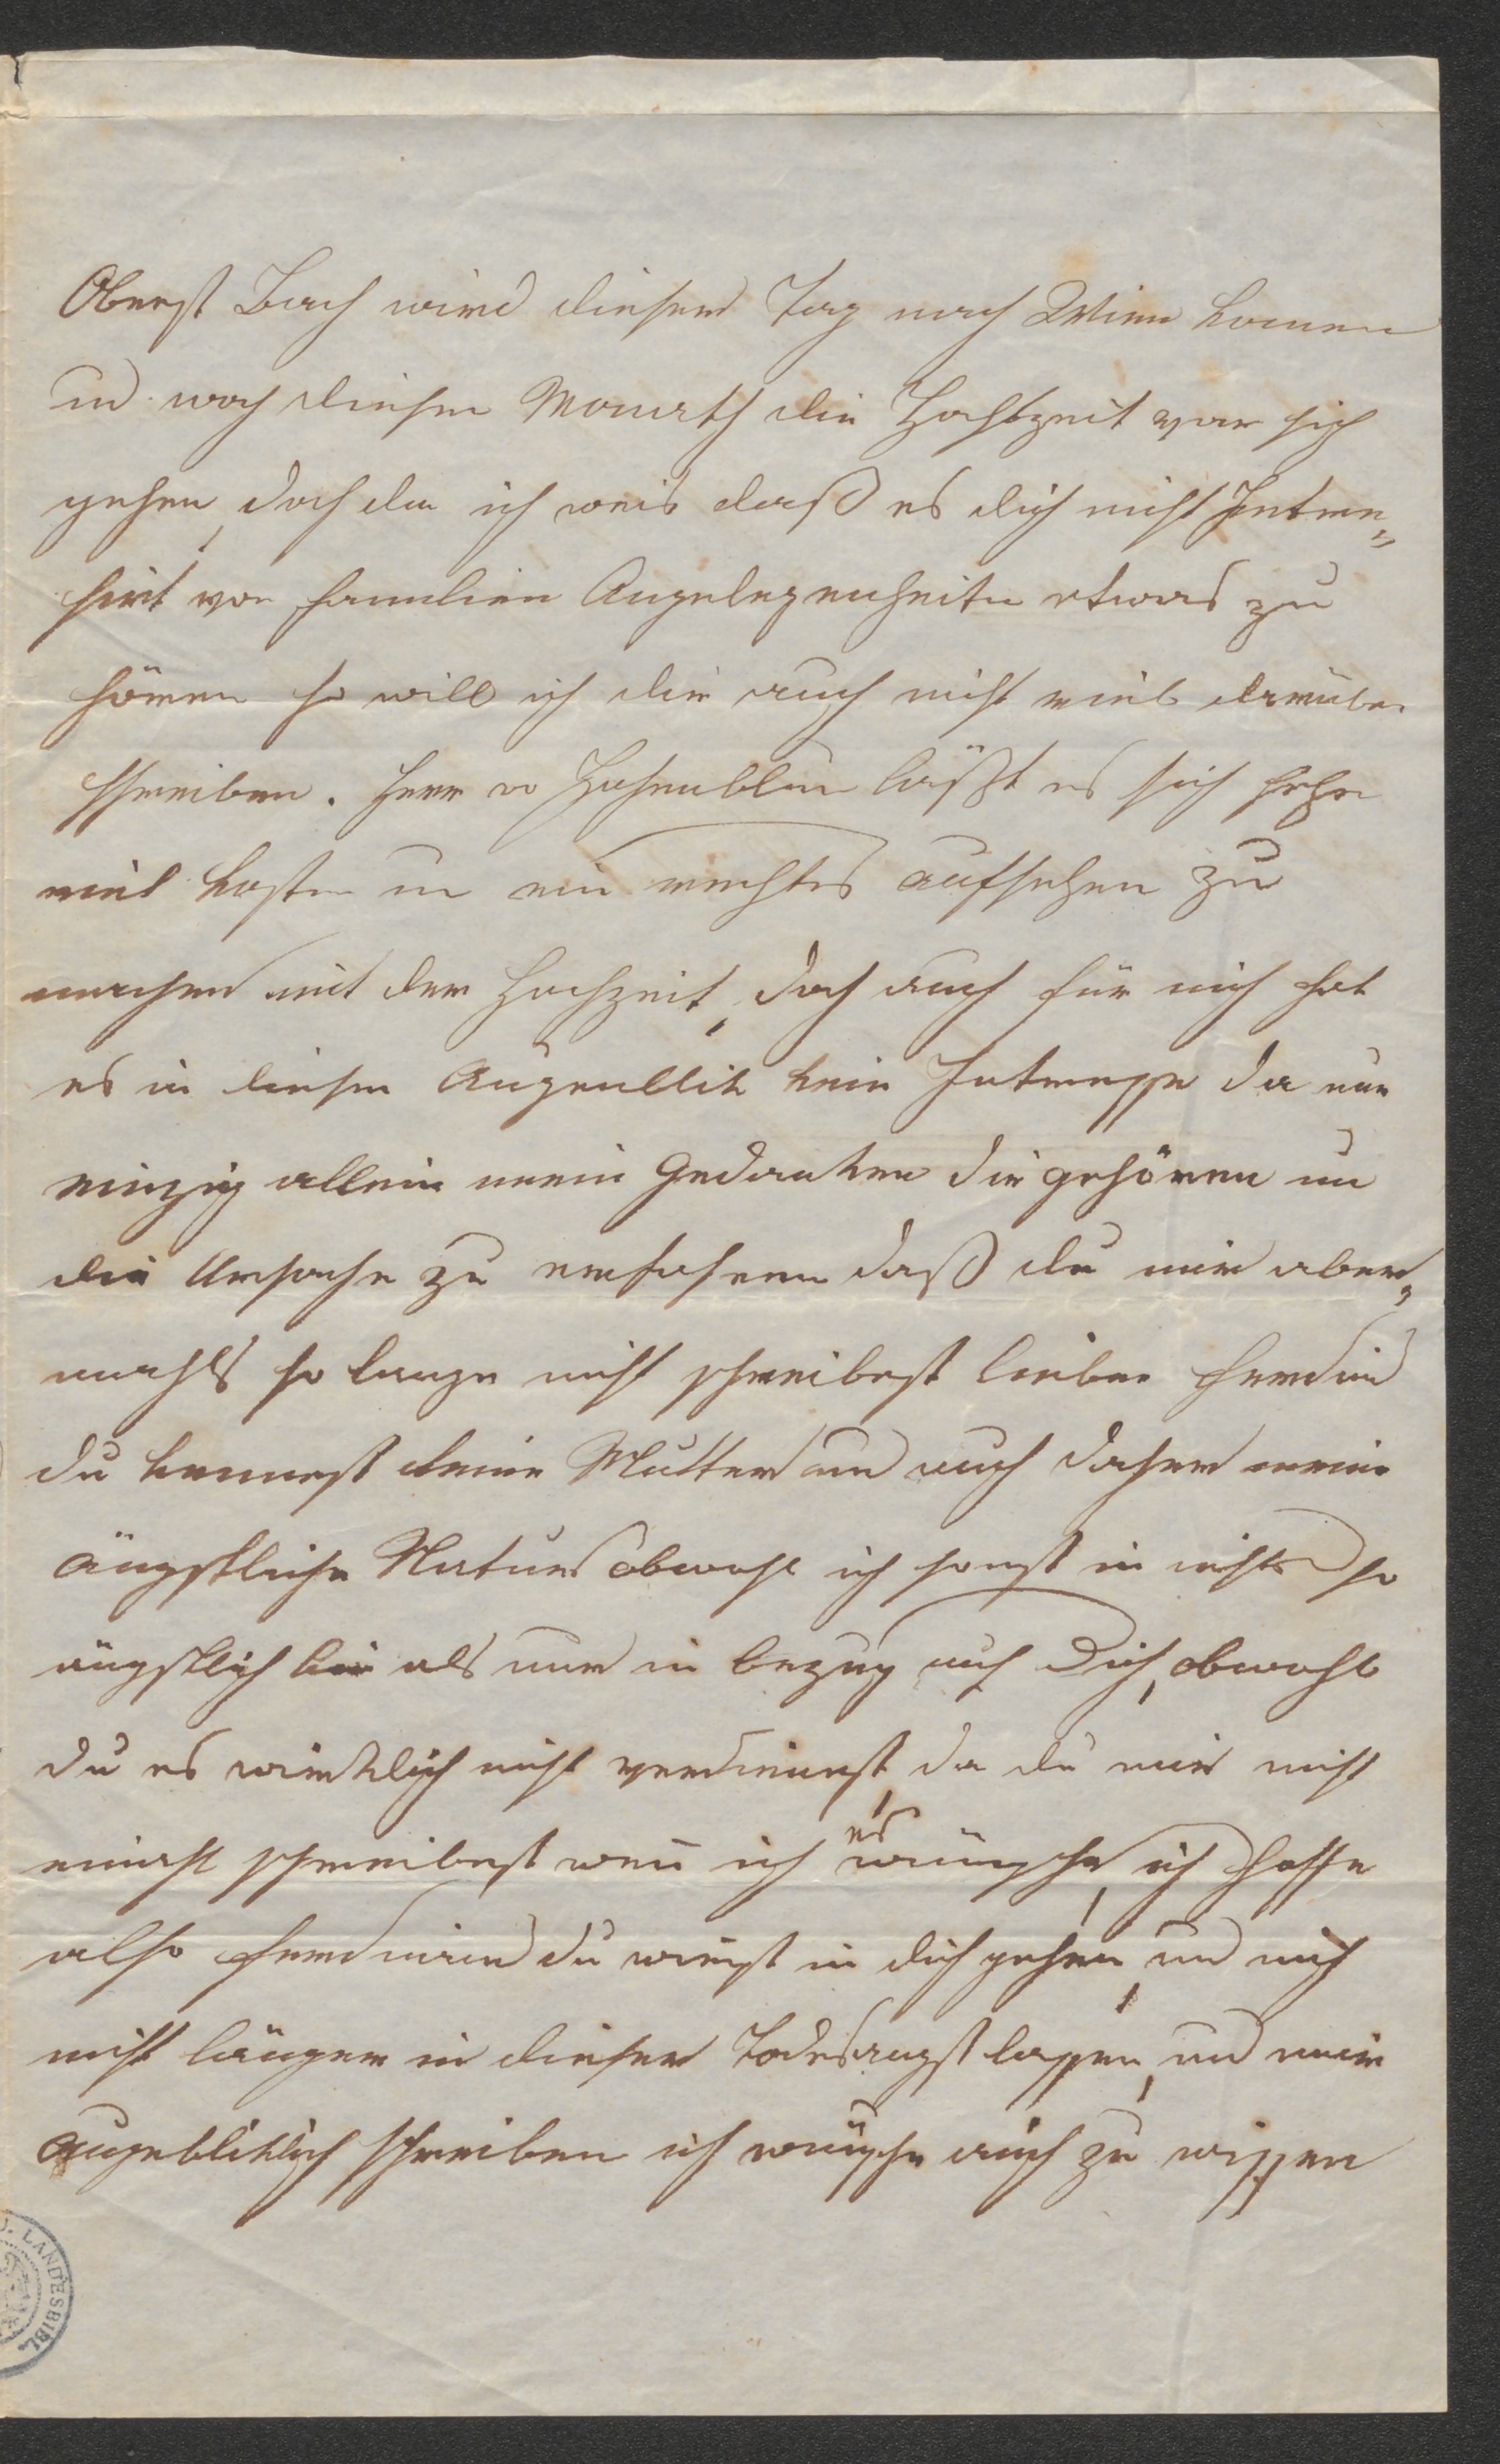 Oberst Bach wird dieser Tag nach Wien komen
und noch diesen Monath die Hochtzeit vor sich
gehen, doch da ich weis daß es dich nicht Intere„
sirt von familien Angelegenheiten etwas zu
hören so will ich dir auch nicht viel darüber
schreiben. Herr v Hohenblum läßt es sich sehr
viel kosten um ein rechtes aufsehen zu
machen mit der Hochzeit, doch auch für mich hat
es in diesen Augenblik kein Interesse da nur
einzig allein mein Gedanken dir gehören um
die Ursache zu erfahren daß du mir aber„
mahls so lange nicht schreibest lieber Ferdin
du kennest deine Mutter und auch daher meine
ängstliche Natur obwohl ich sonst in nichts so
ängstlich bin als nur in bezug auf Dich, obwohl
du es wirklich nicht verdienest, da du mir nicht
einmahl schreibest wen ich es wünsche, ich hoffe
also Ferdinand du wirst in dich gehen, und mich
nicht länger in dieser Todesangst lassen, und mir
augeblicklich schreiben ich wünsche auch zu wissen
LANDESBIBL.